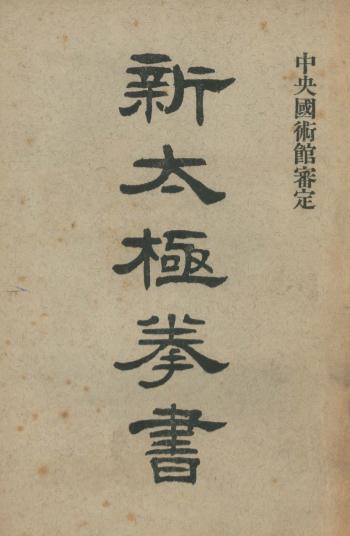 中央國術館審定
新太極拳書